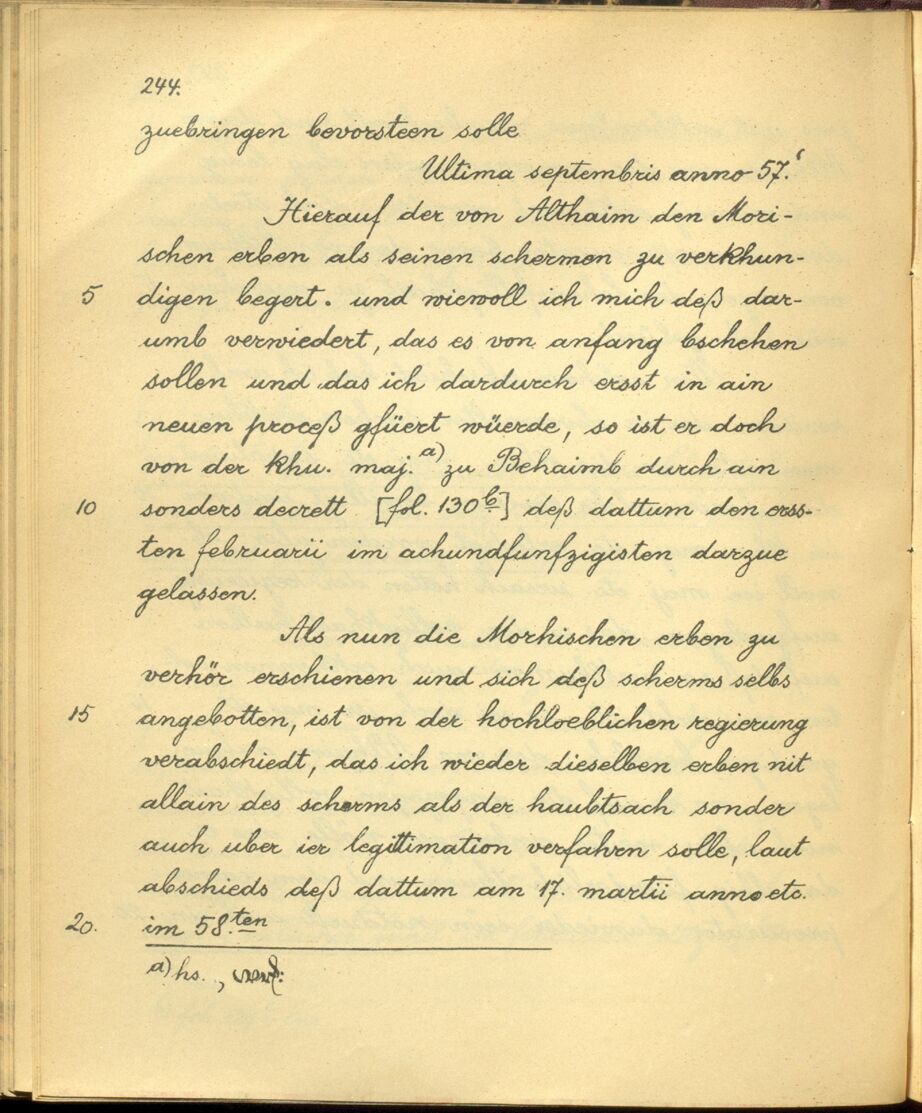 244.
zuebringen bevorsteen solle
Ultima septembris anno 57.‘
Hierauf der von Althaim den Mori-
schen erben als seinen schermen zu verkhun-
5 digen begert. und wiewoll ich mich deß dar-
umb verwiedert, das es von anfang bschehen
sollen und das ich dardurch ersst in ain
neuen proceß gfüert wüerde, so ist er doch
von der khu. maj. a) zu Behaimb durch ain
10 sonders decrett [fol. 130b] deß dattum den erss-
ten februarii im achundfunfzigisten darzue
gelassen.
Als nun die Morhischen erben zu
verhör erschienen und sich deß scherms selbs
15 angebotten, ist von der hochloeblichen regierung
verabschiedt, das ich wieder dieselben erben nit
allain des scherms als der haubtsach sonder
auch uber ier legittimation verfahrn solle, laut
abschieds deß dattum am 17. martii anno etc.
20. im 58.ten
a) hs.